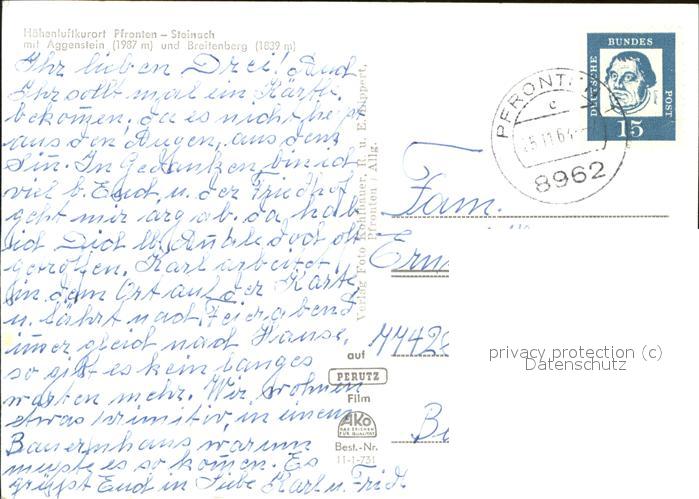 Höhenluftkurort Pfronten – Steinach
mit Aggenstein (1987 m) und Breitenberg (1839 m)
Ihr lieben Drei! Auch
Ihr sollt mal ein Kärtle
bekom̄en, da es nicht heißt
aus den Augen, aus dem
Sinn. In Gedanken bin ich
viel b. Euch u. der Friedhof
geht mir arg ab. da hab
ich Dich lb. doch oft
getroffen. Karl arbeitet
in dem Ort auf der Karte
u. fährt nach Feierabend
im̄er gleich nach Hause,
so gibt es kein langes
warten mehr. Wir wohnen
etwas primitiv, in einem
Bauernhaus warum
mußte es so kom̄en. Es
grüßt Euch in Liebe Karl u.
Verlag Foto Kohlbauer, R. u. E. Keippert,
Pfronten / Allg.
auf
PERUTZ
Film
AKO
DAS ZEICHEN
FÜR QUALITÄT
Best.-Nr.
11-1-731
DEUTSCHE
BUNDES
POST
15
PFRONT
c
8962
Fam.
privacy protection (c)
Datenschutz